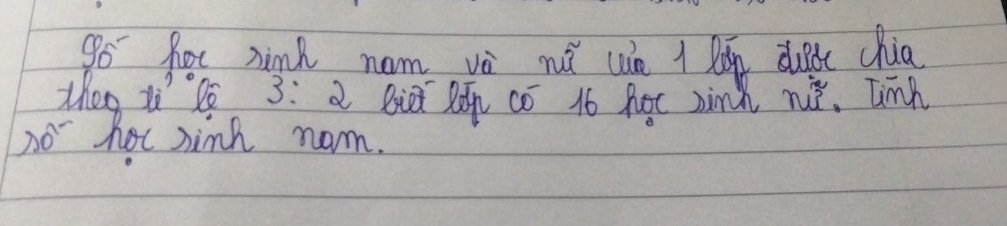 Số học sinh nam và nữ của 1 lớp được chia
theo tỉ lệ 3: 2 biết lớp có 16 học sinh nữ. Tính
số học sinh nam.